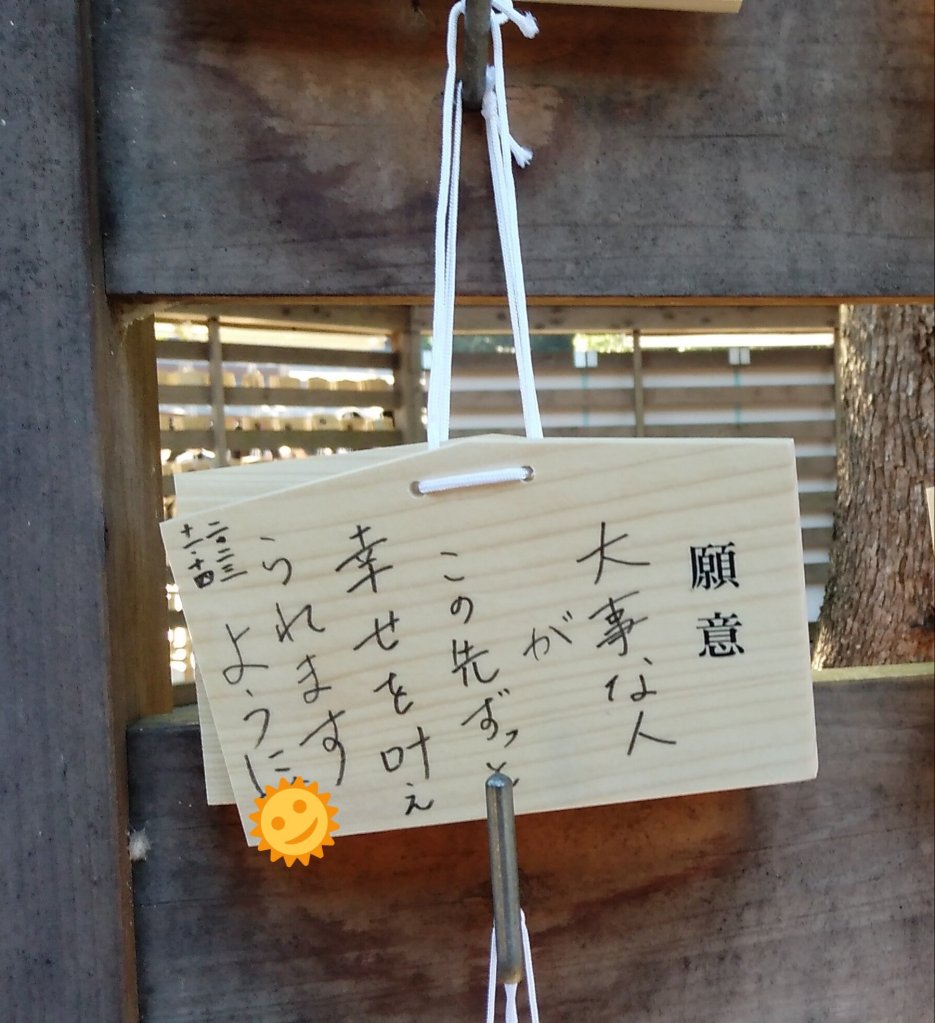 願意
大事な人
が
この先ずっと
幸せを叶え
られます
ように
二〇二三
十二・十四